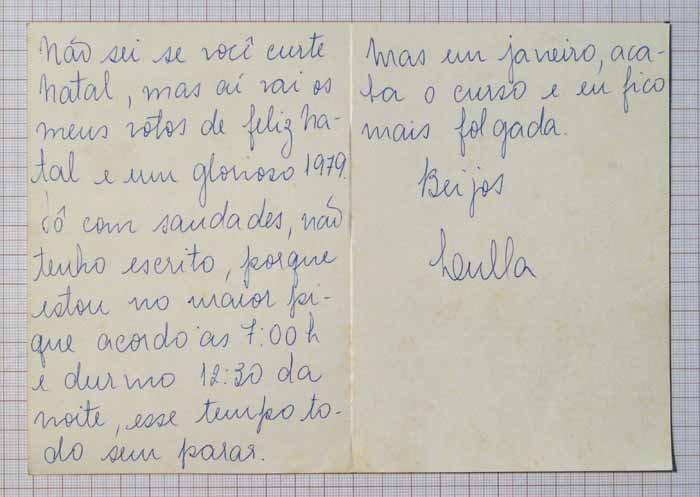 não sei se você curte
natal, mas aí vai os
meus votos de feliz na-
tal e um glorioso 1979.
Tô com saudades, não
tenho escrito, porque
estou no maior pi-
que acordo as 7:00 h
e durmo 12:30 da
noite, esse tempo to-
do sem parar.
mas em janeiro, aca-
ba o curso e eu fico
mais folgada.
Beijos